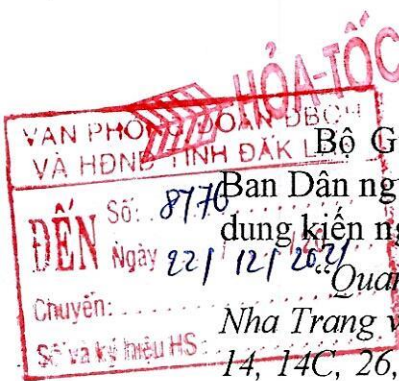 HỎA-TỐC
VĂN PHÒNG ĐOÀN ĐBQH
VÀ HĐND TỈNH ĐĂK L
ĐẾN
Số: 8176
Ngày 22/ 12/ 2021
Chuyển:
Số và ký hiệu HS:
Bộ G
Ban Dân ng
dung kiến ng
"Quan
Nha Trang v
14, 14C, 26,